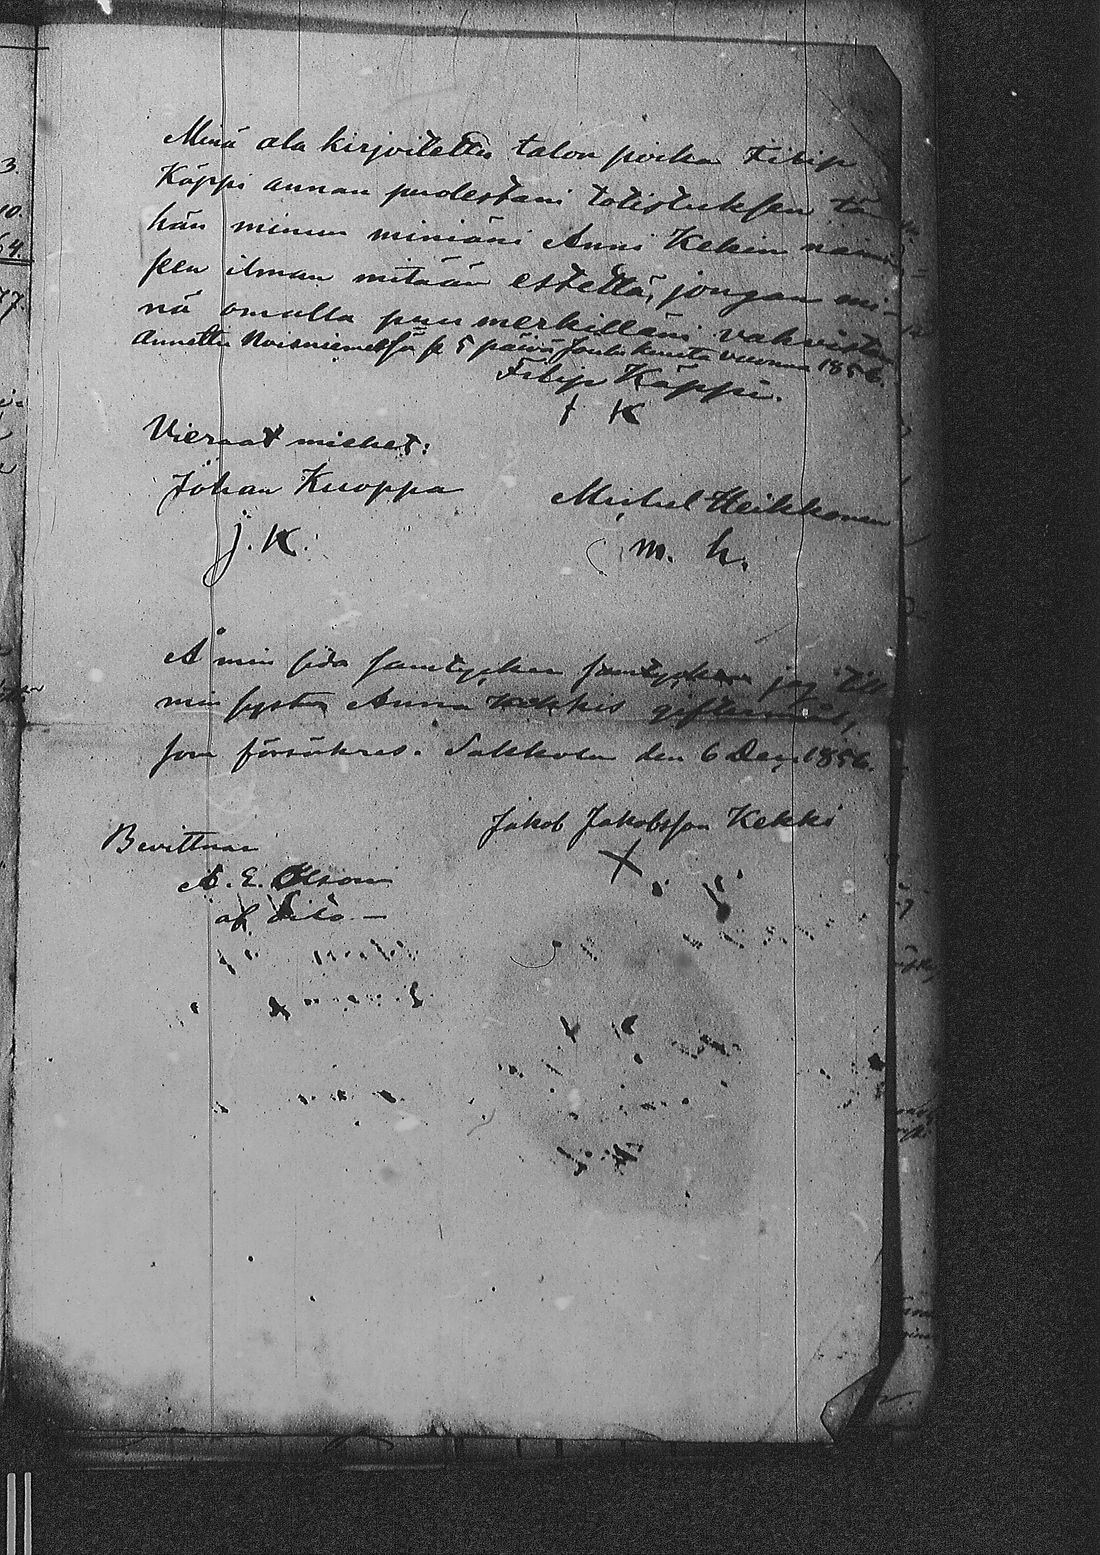 Minä ala kirjoitettu talon poika Filip
Käppi annan puolestani totistuksen tä
hän minun miniäni Anni Kekin naimi
seen ilman mitään estettä, jongan mi-
nä omalla puumerkilläni vahvistan
Annettu Noisniemessä p 5 päivä Joulukuuta vuonna 1856.
Filip Käppi.
f K
Vieraat miehet:
Johan Kuoppa
Michel Heikkonen
j. K.
m. h.
Å min sida samtycker samtycker jag till
min syster Anna Kekkis giftermål,
som försäkras. Sakkola den 6 Dec. 1856.
Jakob Jakobsson Kekki
X
Bevittnar
A. E. Olsoni
af dito. —